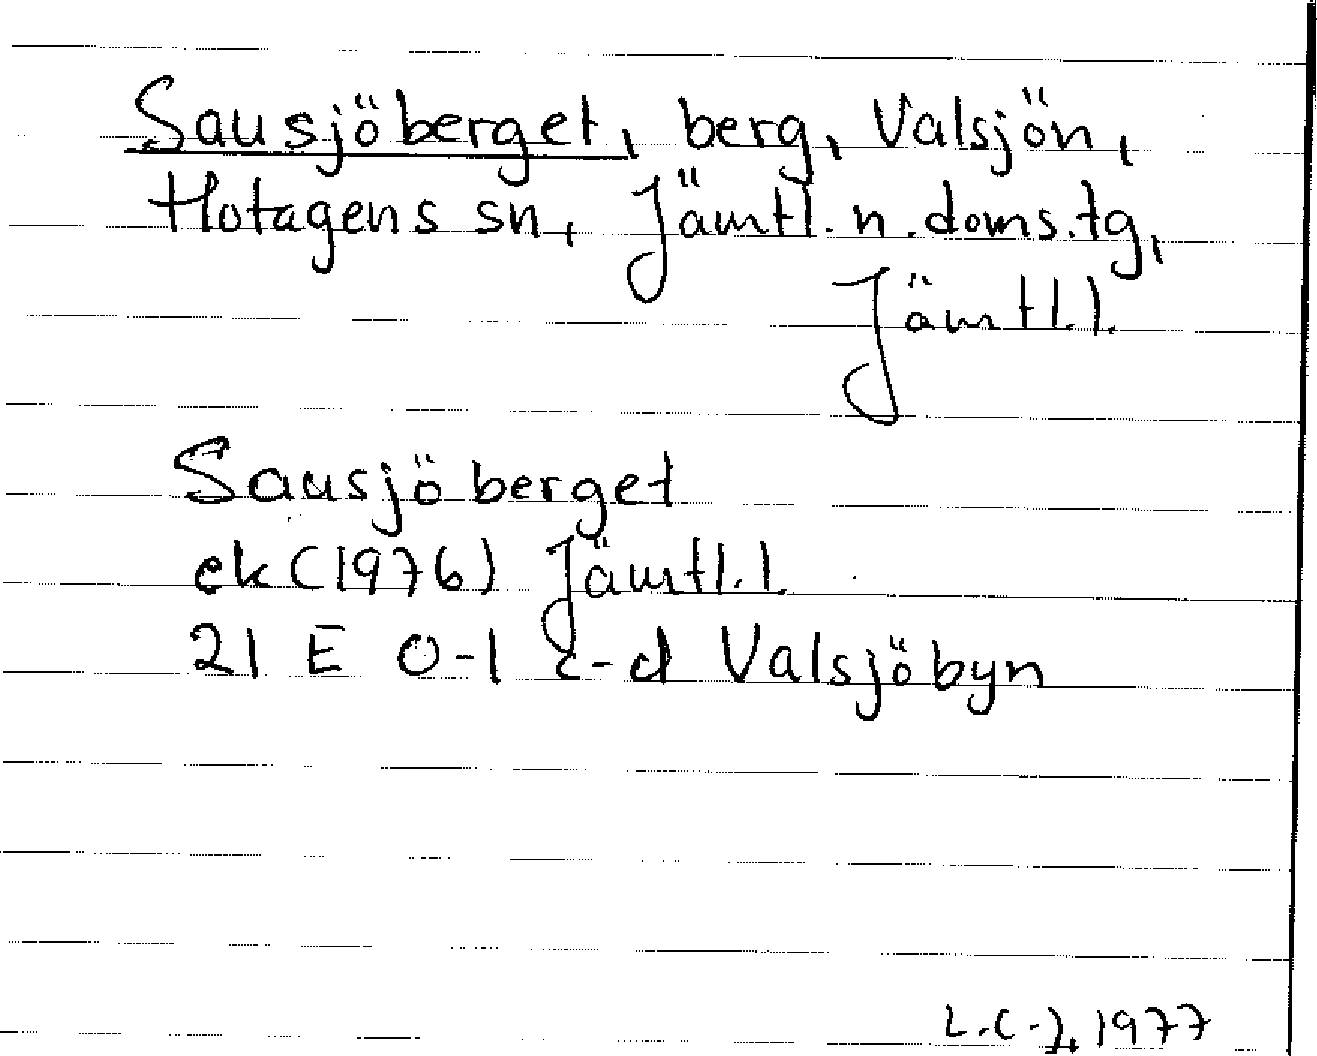 Sausjöberget, berg, Valsjön,
Hotagens sn, Jämtl. n. doms.tg,
Jämtl.l.
Sausjöberget
ek (1976) Jämtl.l.
21 E 0-1 c-d Valsjöbyn
L.C-J, 1977